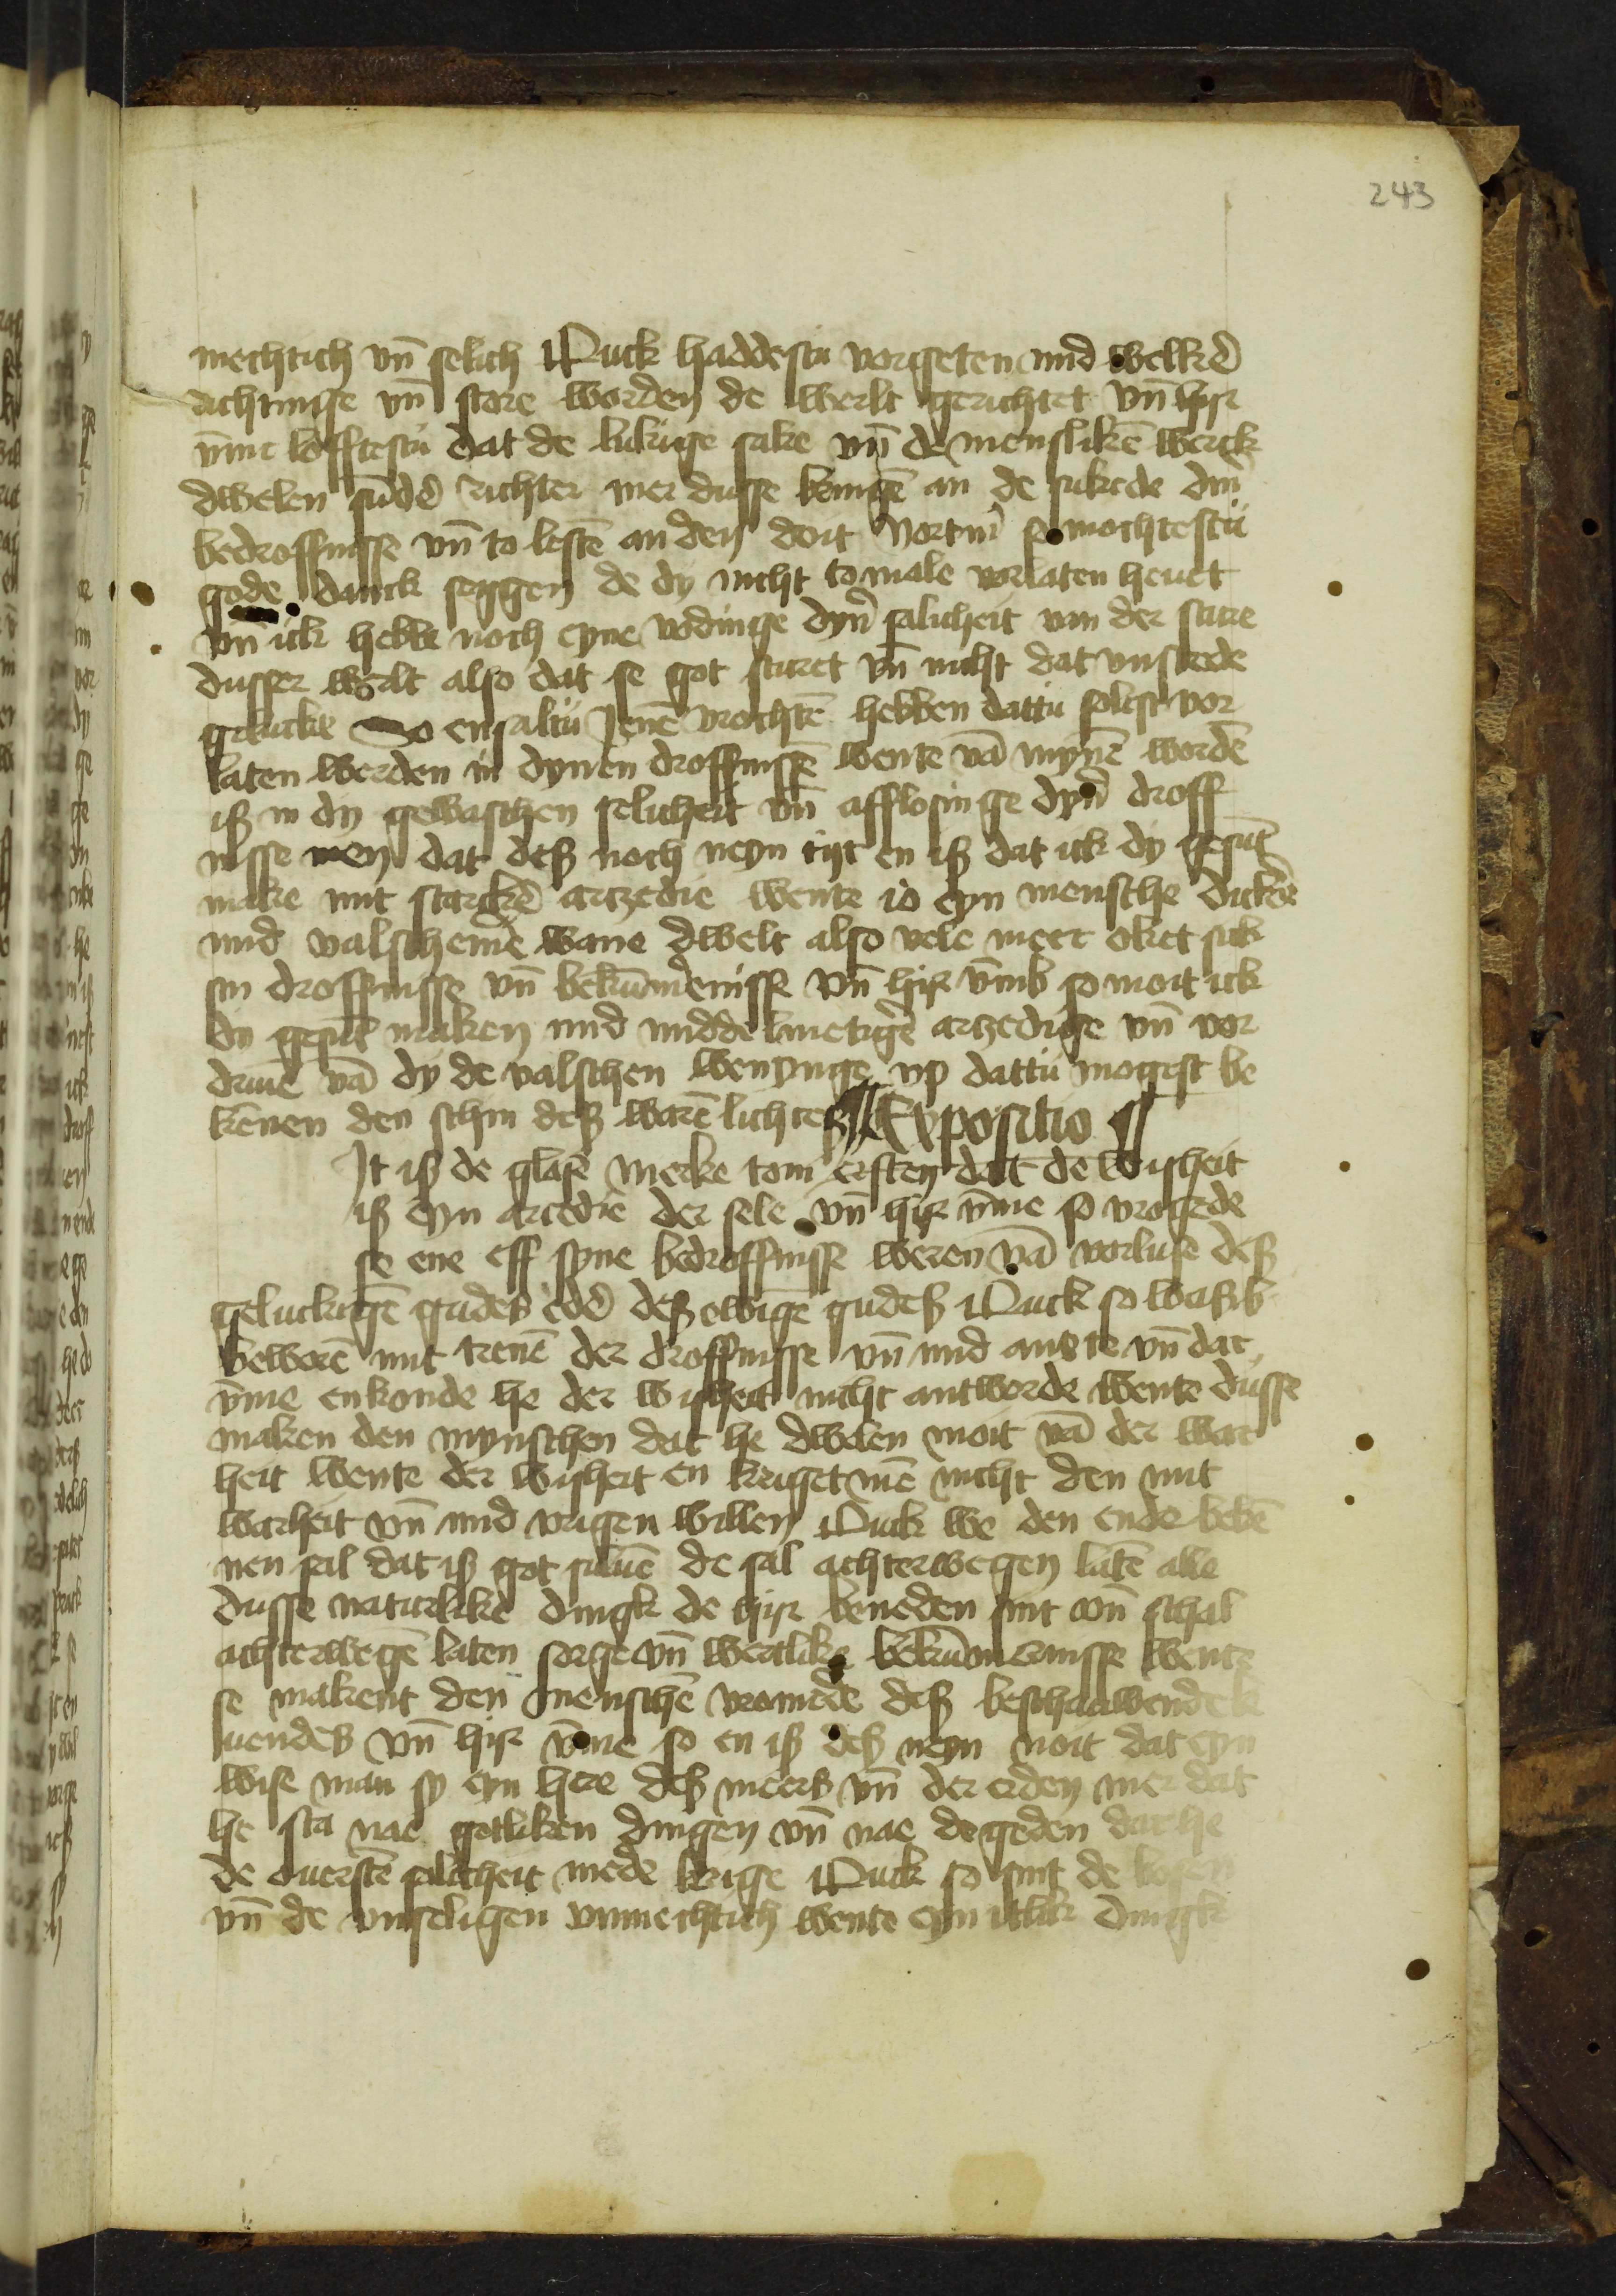 243
mechtich vn̄ selich Ouck haddestu vorgeten mid welkeꝛ
richtinge vn̄ store worden de werlt gerichtet vn̄ hir
vm̄e lofftestu dat de lukige sake vn̄ de menslikē werck
dwelen sūder richter mer dusse bringē an de sukede diner
bedroffnisse vn̄ to lestē an den doit Vortmer so mochtestu
gode danck seggen de dy nicht tomale vorlaten heuet
vn̄ ick hebbe noch eyne vodinge dyner salicheit van der sture
dusser werlt also dat se got sturet vn̄ nicht dat vnstede
gelucke So ensaltu jenē vrochtē hebben dattu solest vor
laten werden in dynen droffnissē wente vā mynē wordē
iß in dy gewasschen selicheit vn̄ afflosinge dyner droff
nisse men dat deß noch neyn tijt en iß dat ick dy gesūt
make mit starckē arczedie wente io eyn mensche dicker
mid valschemē wane dwelt also vele meer oket sick
sin droffnisse vn̄ bekūmernisse vn̄ hir vmb so moit ick
dy gesūt maken mid middelmetigē arczedige vn̄ vor
driuē vā dy de valschen wenynge vp dattu mogest be
kēnen den schin deß warē lichteß Expositio
It iß de glose Merke tom ersten dat de wisheit
iß eyn arcedie der sele vn̄ hir vm̄e so vrogede
se ene eff syne bedroffnisse weren vā vorluse deß
geluckigē gudeß eder deß ewigē gudeß Ouck so waß
beworē mit trenē der droffnisse vn̄ mid anxte vn̄ dar
vm̄e enkonde he der wisheit nicht antworde wente dusse
maken den mynschen dat he dwelen moit vā der war
heit wente der wisheit en kriget mē nicht den mit
warheit vn̄ mid vrigen willen Ouck we den ende bekē
nen sal dat iß got suluē de sal achterwegen latē alle
dusse naturlike dingk de hir beneden sint vn̄ schal
achterwegē laten sorge vn̄ wertlike bekūmernisse wente
se makent den menschē vromede deß beschauwende le
uendeß vn̄ hir vm̄e so en iß deß neyn noit dat eyn
wise man sy eyn here deß meerß vn̄ der erden mer dat
he sta nae gotliken dingen vn̄ nae degeden dat he
de ouerstē salicheit mede krige Ouck so sint de bosen
vn̄ de vnseligen vnmechtich wente eyn itlik dingk